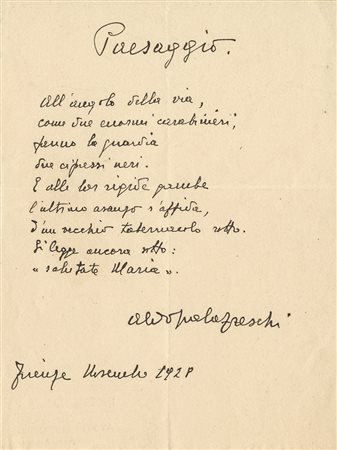 Paesaggio.
All'angolo della via,
come due enormi carabinieri,
fanno la guardia
due cipressi neri.
E alle lor rigide gambe
l'ultimo avanzo s'affida,
d'un vecchio tabernacolo rotto.
Si legge ancora sotto:
"salutate Maria".
Aldo Palazzeschi
Firenze 1928